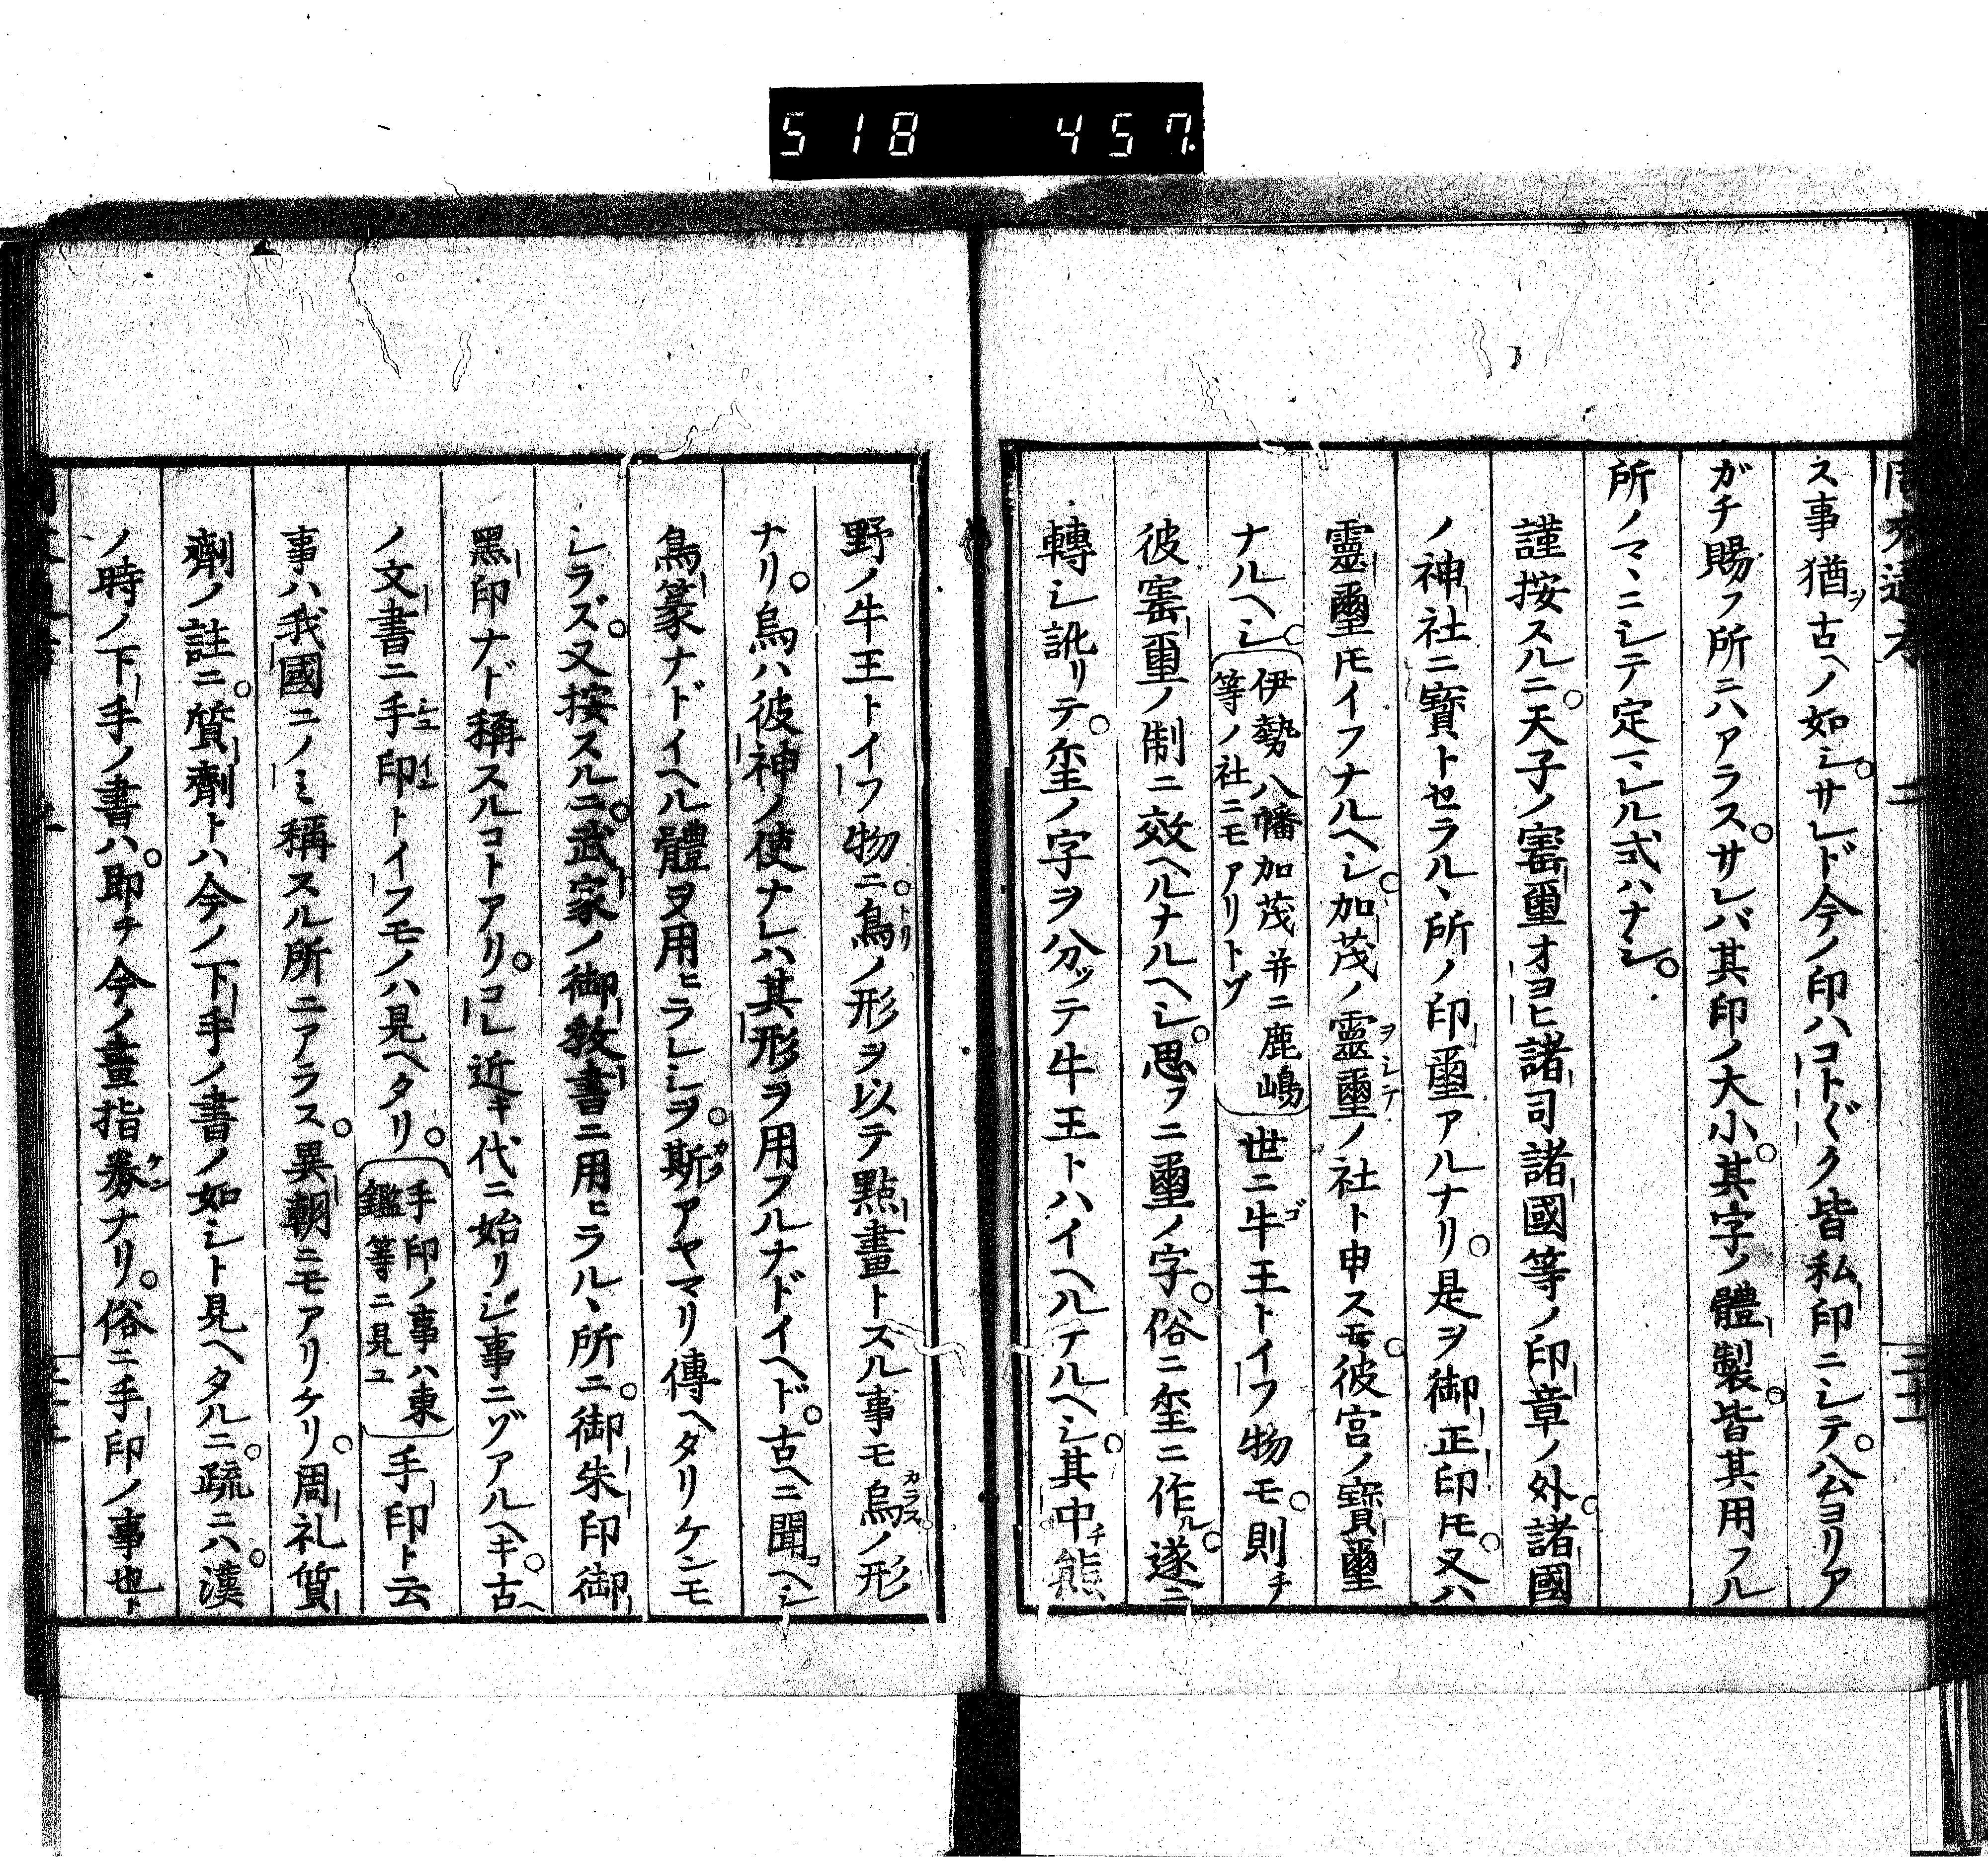 518 457
ス事猶ヲ古ヘノ如シ。サレド今ノ印ハコト〴〵ク皆私印ニシテ。公ヨリア
ガチ賜フ所ニハアラス。サレバ其印ノ大小。其字ノ體製。皆其用フル
所ノマヽニシテ定マレル式ハナシ。
謹按スルニ。天子ノ寚璽オヨヒ諸司諸國等ノ印章ノ外。諸國
ノ神社ニ寳トセラルヽ所ノ印璽アルナリ。是ヲ御正印トモ。又ハ
靈璽トモイフナルヘシ。加茂ノ靈璽ノ社ト申スモ。彼宮ノ寳璽
ナルヘシ。伊勢八幡加茂并ニ鹿嶋
等ノ社ニモアリトゾ
世ニ牛王トイフ物モ。則チ
彼寚璽ノ制ニ效ヘルナルヘシ。思フニ璽ノ字。俗ニ壐ニ作ル。遂ニ
轉シ訛リテ。壐ノ字ヲ分ッテ牛王トハイヘルナルヘシ。其中チ熊
野ノ牛王トイフ物ニ。鳥ノ形ヲ以テ點畫トスル事モ烏ノ形
ナリ。烏ハ彼神ノ使ナレハ其形ヲ用フルナドイヘド。古ヘニ聞コヘシ
鳥篆ナドイヘル體ヲ用ヒラレシヲ。斯アヤマリ傳ヘタリケンモ
シラズ。又按スルニ。武家ノ御教書ニ用ヒラルヽ所ニ。御朱印御
黑印ナド稱スルコトアリ。コレ近キ代ニ始リシ事ニゾアルヘキ。古ヘ
ノ文書ニ手印トイフモノハ見ヘタリ。手印ノ事ハ東
鑑等ニ見ユ
手印ト云
事ハ我國ニノミ稱スル所ニアラス。異朝ニモアリケリ。周礼質
劑ノ註ニ。質劑トハ今ノ下手ノ書ノ如シト見ヘタルニ。疏ニハ。漢
ノ時ノ下手ノ書ハ。即チ今ノ畫指券ナリ。俗ニ手印ノ事也ト